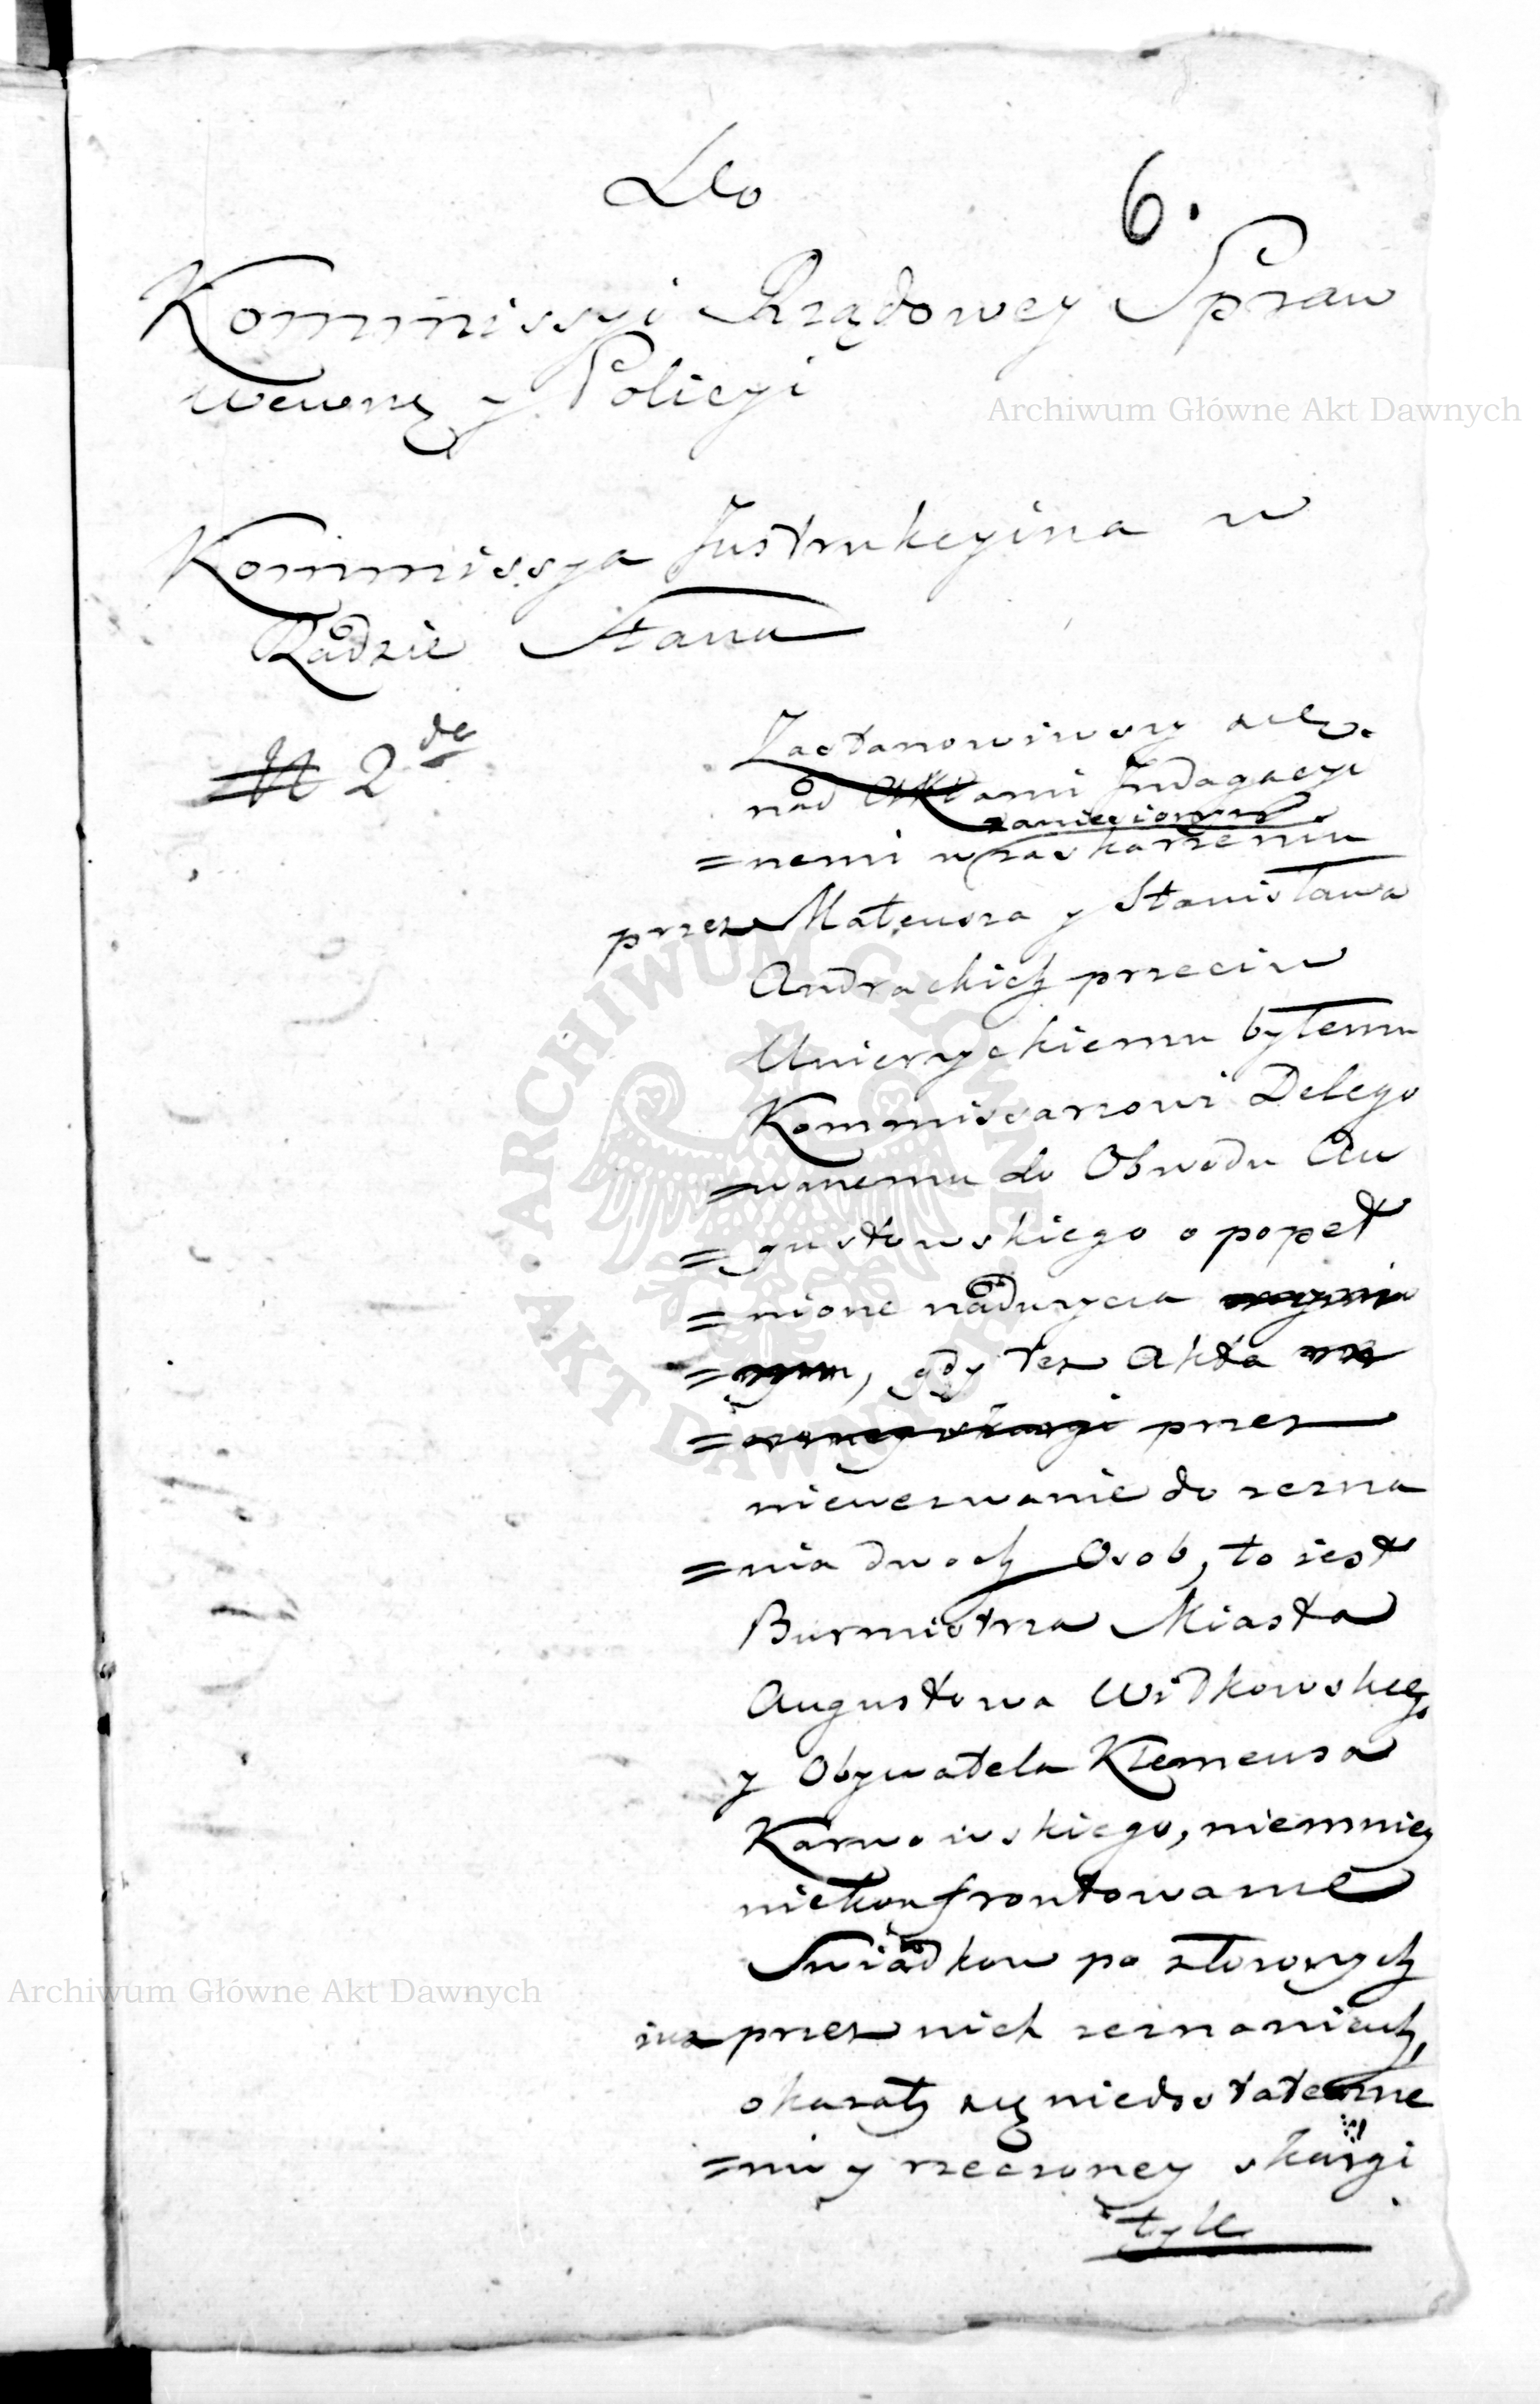 Do
6.
Kommissyi Rządowey Spraw
Wewnę y Policyi
Archiwum Główne Akt Dawnych
Kommissya Instrukcyina w
Radzie Stanu
N 2
Zastanowiwszy się
nad Aktami Indagacyi
zaniesionem
=nemi w zaskarzeniu
przez Mateusza y Stanisława
Andrackich przeciw
Unierzyckiemu byłemu
Kommissarzowi Delego
=wanemu do Obwodu Au
=gustowskiego o popeł
=nione nadurzycia
, gdy też Akta
= przez
niewezwanie do zezna
=nia dwoch Osob, to iest
Burmistrza Miasta
Augustowa Witkowskieg
y Obywatela Klemensa
Karwowskiego, niemniey
niekonfrontowanie
Swiadkow po złożonych
iuż przez nich zeznaniach,
Archiwum Główne Akt Dawnych
okazały się niedostateczne
=mi y rzeczoney skargi
tyle
ARCHIWUM GŁÓWNE
AKT DAWNYCH